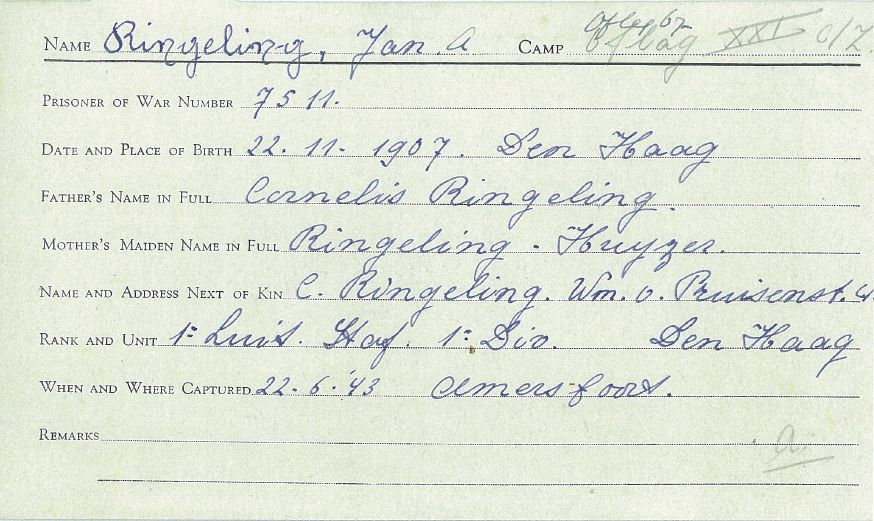 NAME Ringeling, Jan. A CAMP Oflag XXI C/Z.
PRISONER OF WAR NUMBER 7511.
DATE AND PLACE OF BIRTH 22. 11. 1907. Den Haag
FATHER'S NAME IN FULL Cornelis Ringeling.
MOTHER'S MAIDEN NAME IN FULL Ringeling - Huyzer.
NAME AND ADDRESS NEXT OF KIN C. Ringeling. Wm. v. Pruisenst.
RANK AND UNIT 1e Luit. Staf. 1e Div. Den Haag
WHEN AND WHERE CAPTURED 22. 6. '43 Amersfoort.
REMARKS
a.